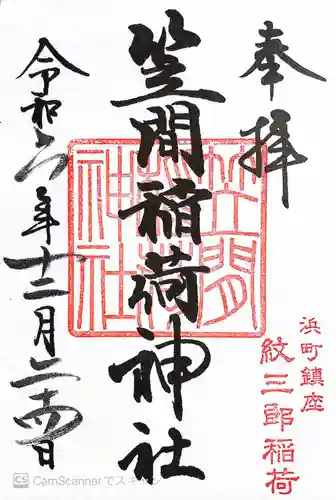 奉拝
浜町鎮座
紋三郎稲荷
笠間稲荷神社
笠間稲荷神社
令和六年十二月二十四日
CS CamScannerでスキャン